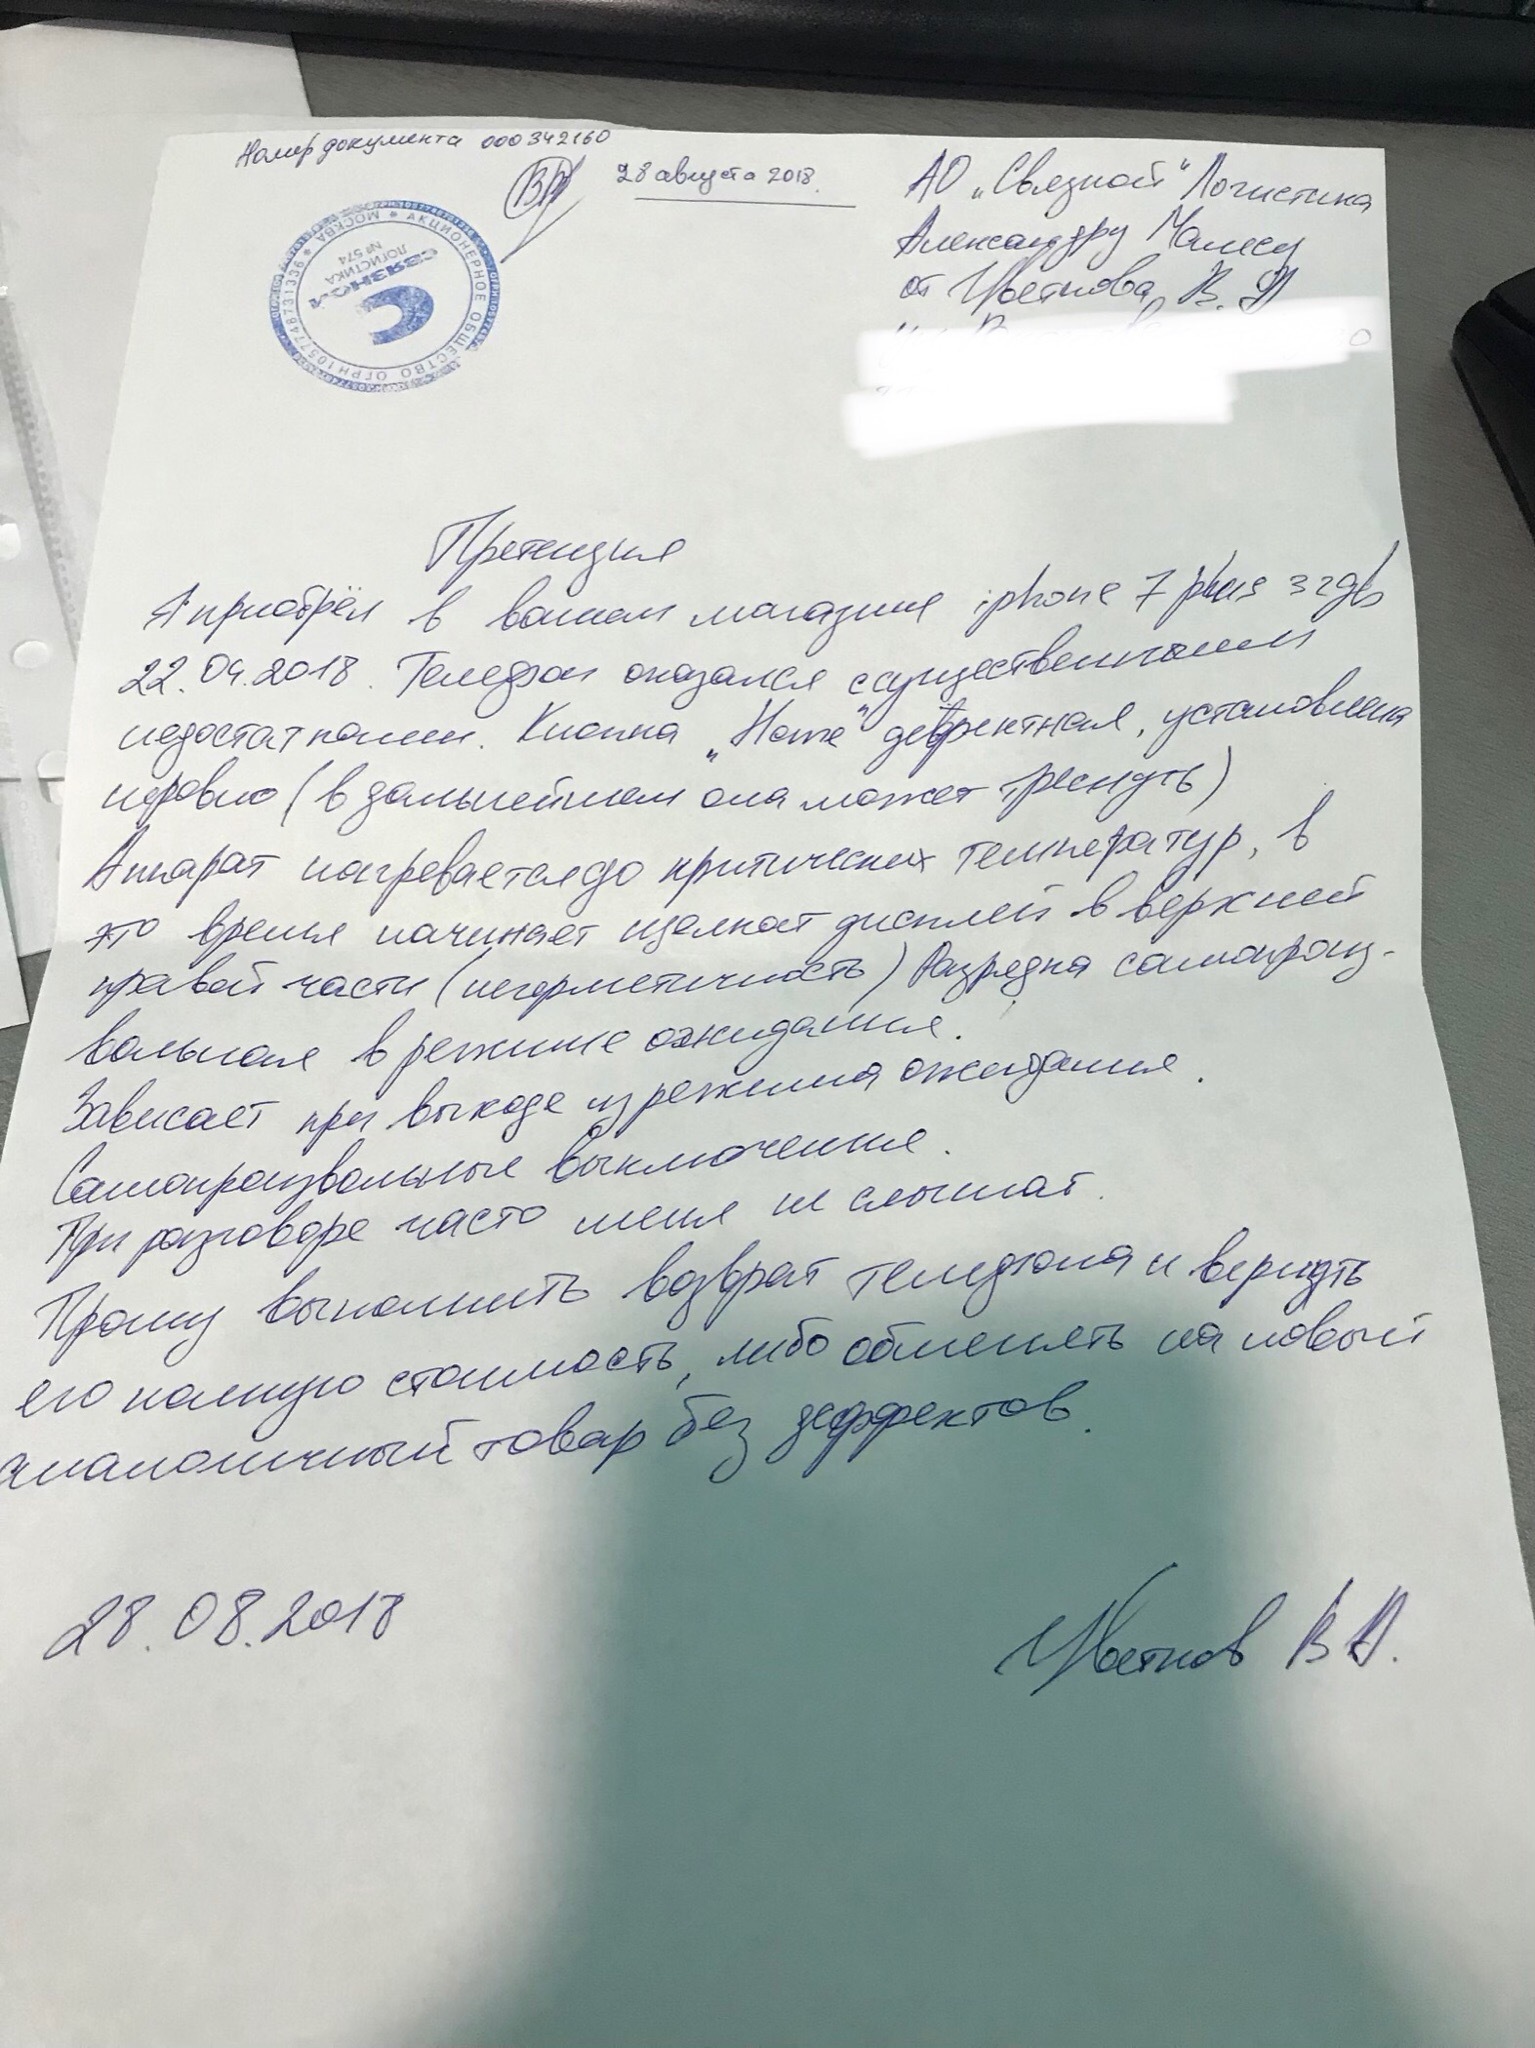 Номер документа 000342160
28 августа 2018.
АО „Связной" Логистика
Александру Малису
от Цветкова В. А
АКЦИОНЕРНОЕ ОБЩЕСТВО ОГРН 1057748731336 * МОСКВА *
СВЯЗНОЙ
ЛОГИСТИКА
№ 574
Претензия
Я приобрёл в вашем магазине iphone 7 plus 32gb
22.04.2018. Телефон оказался с существенными
недостатками. Кнопка „Home" дефектная, установлена
неровно (в дальнейшем она может треснуть)
Аппарат нагревается до критических температур, в
это время начинает щелкат дисплей в верхней
правой части (негерметичность) Разрядка самопроиз-
вольная в режиме ожидания.
Зависает при выходе из режима ожидания.
Самопроизвольные выключения.
При разговоре часто меня не слышат.
Прошу выполнить возврат телефона и вернуть
его полную стоимость, либо обменять на новый
аналогичный товар без деффектов.
28.08.2018
Цветков В А.